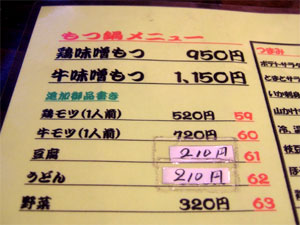 もつ鍋メニュー
鶏味噌もつ 950円
牛味噌もつ 1,150円
追加御品書き
鶏モツ(1人前) 520円 59
牛モツ(1人前) 720円 60
豆腐 210円 61
うどん 210円 62
野菜 320円 63
つまみ
ポテトサラダ
とまとサラダ
いか刺身
山かけ